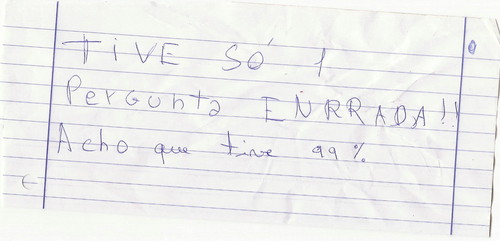 TIVE SÓ 1
Pergunta ENRRADA!!
Acho que tive 99%